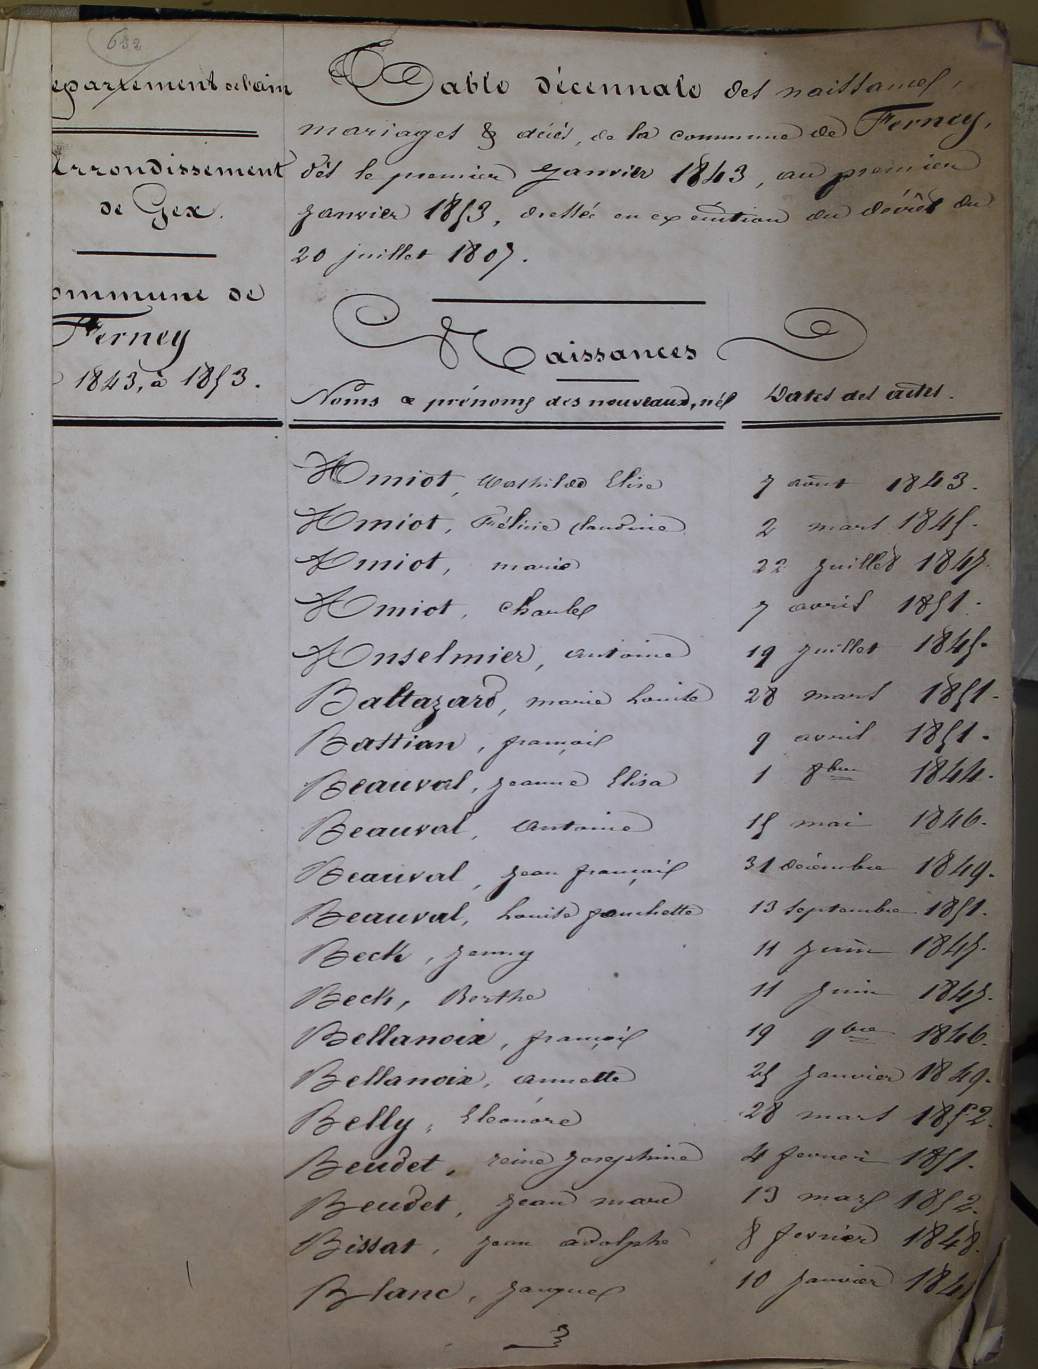 682
épartement de l'ain
Arrondissement
de Gex.
ommune de
Ferney
1843, à 1853.
Table décennale des naissances,
mariages & décès, de la commune de Ferney,
dès le premier Janvier 1843, au premier
Janvier 1853, dressée en exécution du décrêt du
20 juillet 1807.
Naissances
Noms & prénoms des nouveaux, nés Dates des actes.
Amiot, Mathilde Elise 7 août 1843.
Amiot, Félicie Claudine 2 mars 1845.
Amiot, marie 22 Juillet 1847.
Amiot, Charles 7 avril 1851.
Anselmier, antoine 19 Juillet 1845.
Baltazard, marie Louise 28 mars 1851.
Bastian, françois 9 avril 1851.
Beauval, Jeanne Elisa 1 8bre 1844.
Beauval, Antoine 15 mai 1846.
Beauval, Jean françois 31 décembre 1849.
Beauval, Louise fanchette 13 septembre 1851.
Beck, Jenny 11 Juin 1845.
Beck, Berthe 11 Juin 1845.
Bellanoix, françois 19 9bre 1846.
Bellanoix, annette 25 Janvier 1849.
Belly, Eléonore 28 mars 1852.
Beudet, reine Josephine 4 fevrier 1851.
Beudet, Jean marc 13 mars 1852.
Bissat, Jean adolphe 8 fevrier 1848.
Blanc, Jacques 10 Janvier 184